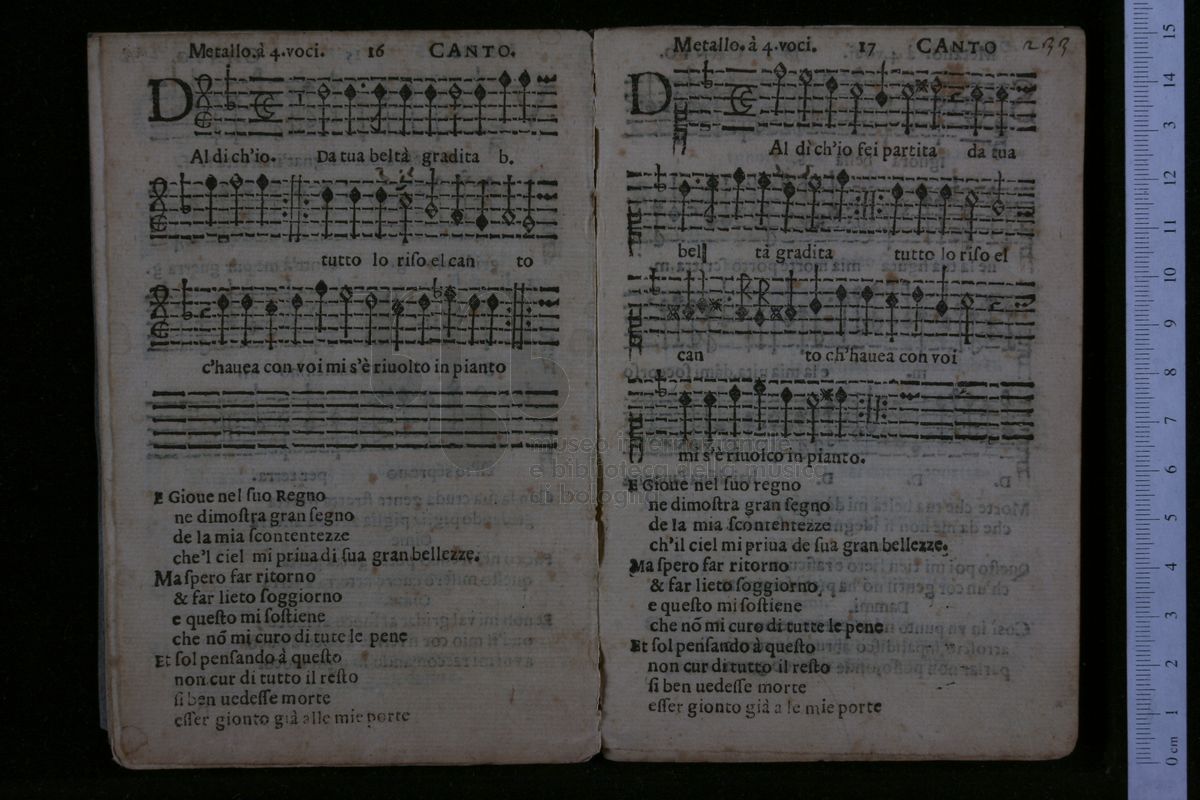 Metallo. à 4. voci. 16 CANTO.
D
Al di ch'io. Da tua beltà gradita b.
tutto lo riſo el can to
c'hauea con voi mi s'è riuolto in pianto
E Gioue nel ſuo Regno
ne dimoſtra gran ſegno
de la mia ſcontentezze
che'l ciel mi priua di ſua gran bellezze.
Ma ſpero far ritorno
& far lieto ſoggiorno
e queſto mi ſoſtiene
che nõ mi curo di tute le pene
Et ſol penſando à queſto
non cur di tutto il reſto
ſi ben uedeſſe morte
eſſer gionto già alle mie porte
Metallo. à 4. voci. 17 CANTO 233
D
Al di ch'io fei partita da tua
bel tà gradita tutto lo riſo el
can to ch'auea con voi
mi s'è riuolto in pianto.
E Gioue nel ſuo regno
ne dimoſtra gran ſegno
de la mia ſcontentezze
ch'il ciel mi priua de ſua gran bellezze.
Ma ſpero far ritorno
& far lieto ſoggiorno,
e queſto mi ſoſtiene
che nõ mi curo di tutte le pene
Et ſol penſando à queſto
non cur di tutto il reſto
ſi ben uedeſſe morte
eſſer gionto già a le mie porte
museo internazionale
e biblioteca della musica
di bologna
15
14
13
12
11
10
9
8
7
6
5
4
3
2
1
0 cm